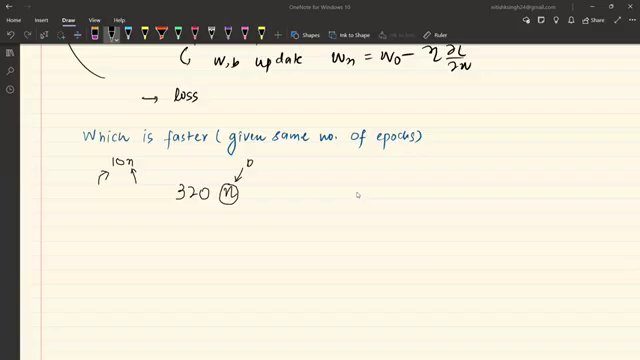 OneNote for Windows 10
nitishksingh24@gmail.com
Home Insert Draw View Help
Shapes Ink to Shape Ruler
w,b update wn = w0 − η ∂L/∂w
→ loss
Which is faster (given same no. of epochs)
10n
320 n